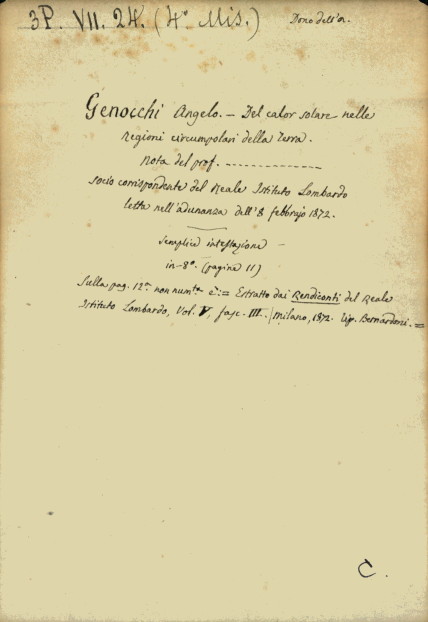 3P. VII. 24. (4º Mis.) Dono dell'a.
Genocchi Angelo. — Del calor solare nelle
regioni circumpolari della Terra.
Nota del prof. ----------------
socio corrispondente del Reale Istituto Lombardo
letta nell'adunanza dell'8 febbrajo 1872.
Semplice intestazione —
in-8º. (pagine 11)
Sulla pag. 12ª. non numta. è:= Estratto dai Rendiconti del Reale
Istituto Lombardo, Vol. V, fasc. III. / Milano, 1872. tip. Bernardoni. =
C.